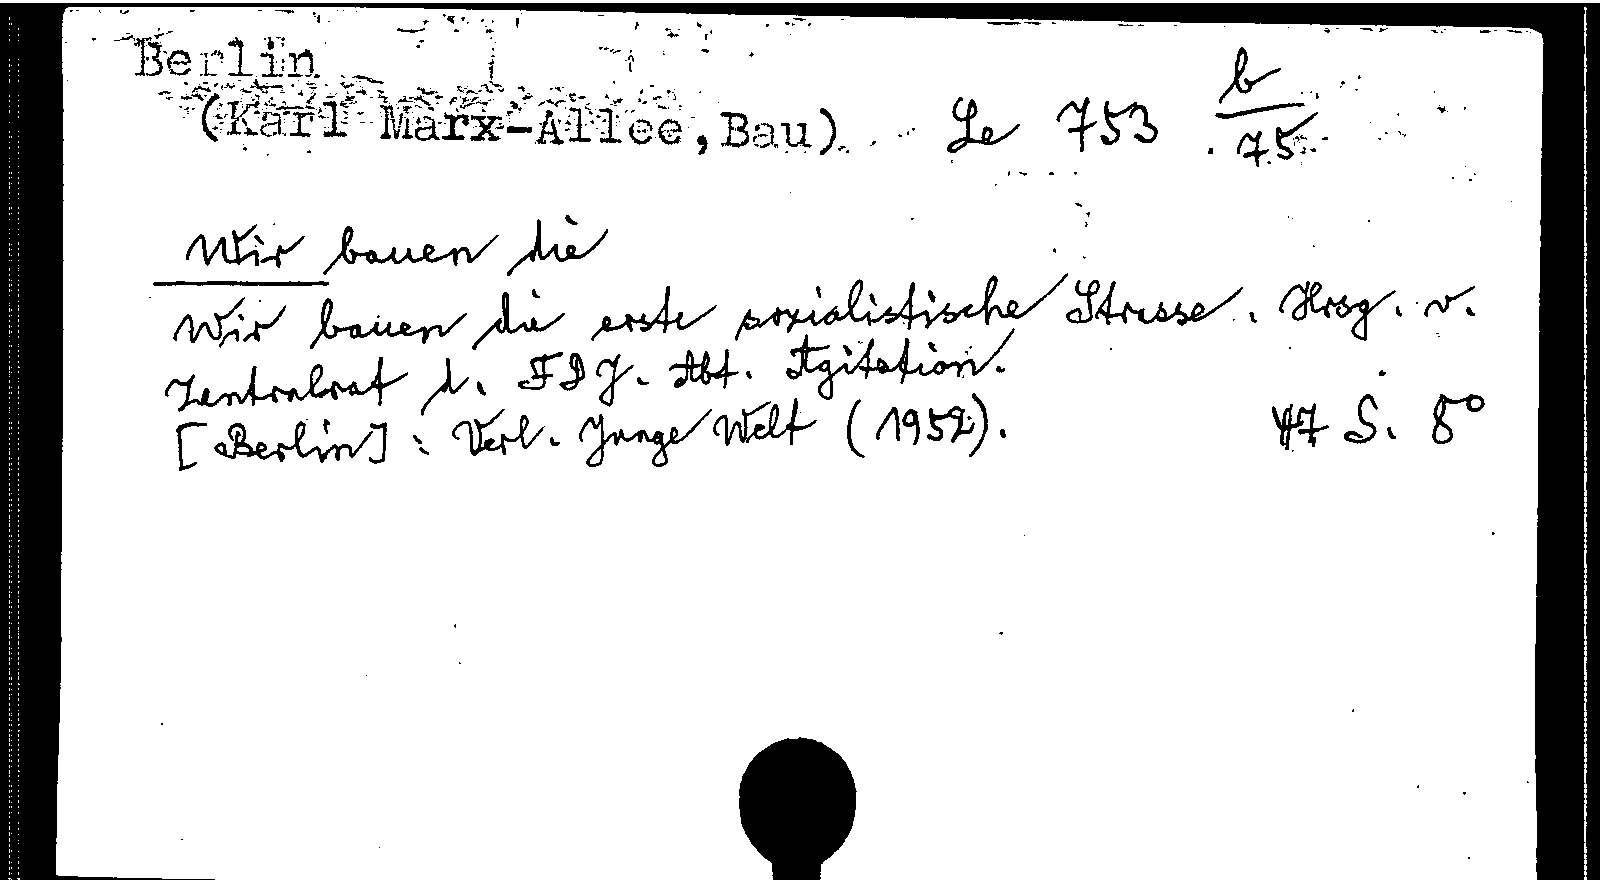 Berlin
(Karl Marx-Allee,Bau) Le 753 b/75
Wir bauen die
Wir bauen die erste sozialistische Strasse. Hrsg. v.
Zentralrat d. FDJ. Abt. Agitation.
[Berlin]: Verl. Junge Welt (1952). 47 S. 8°